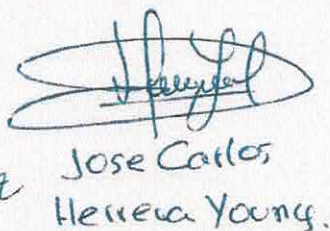 Jose Carlos
Herrera Young.